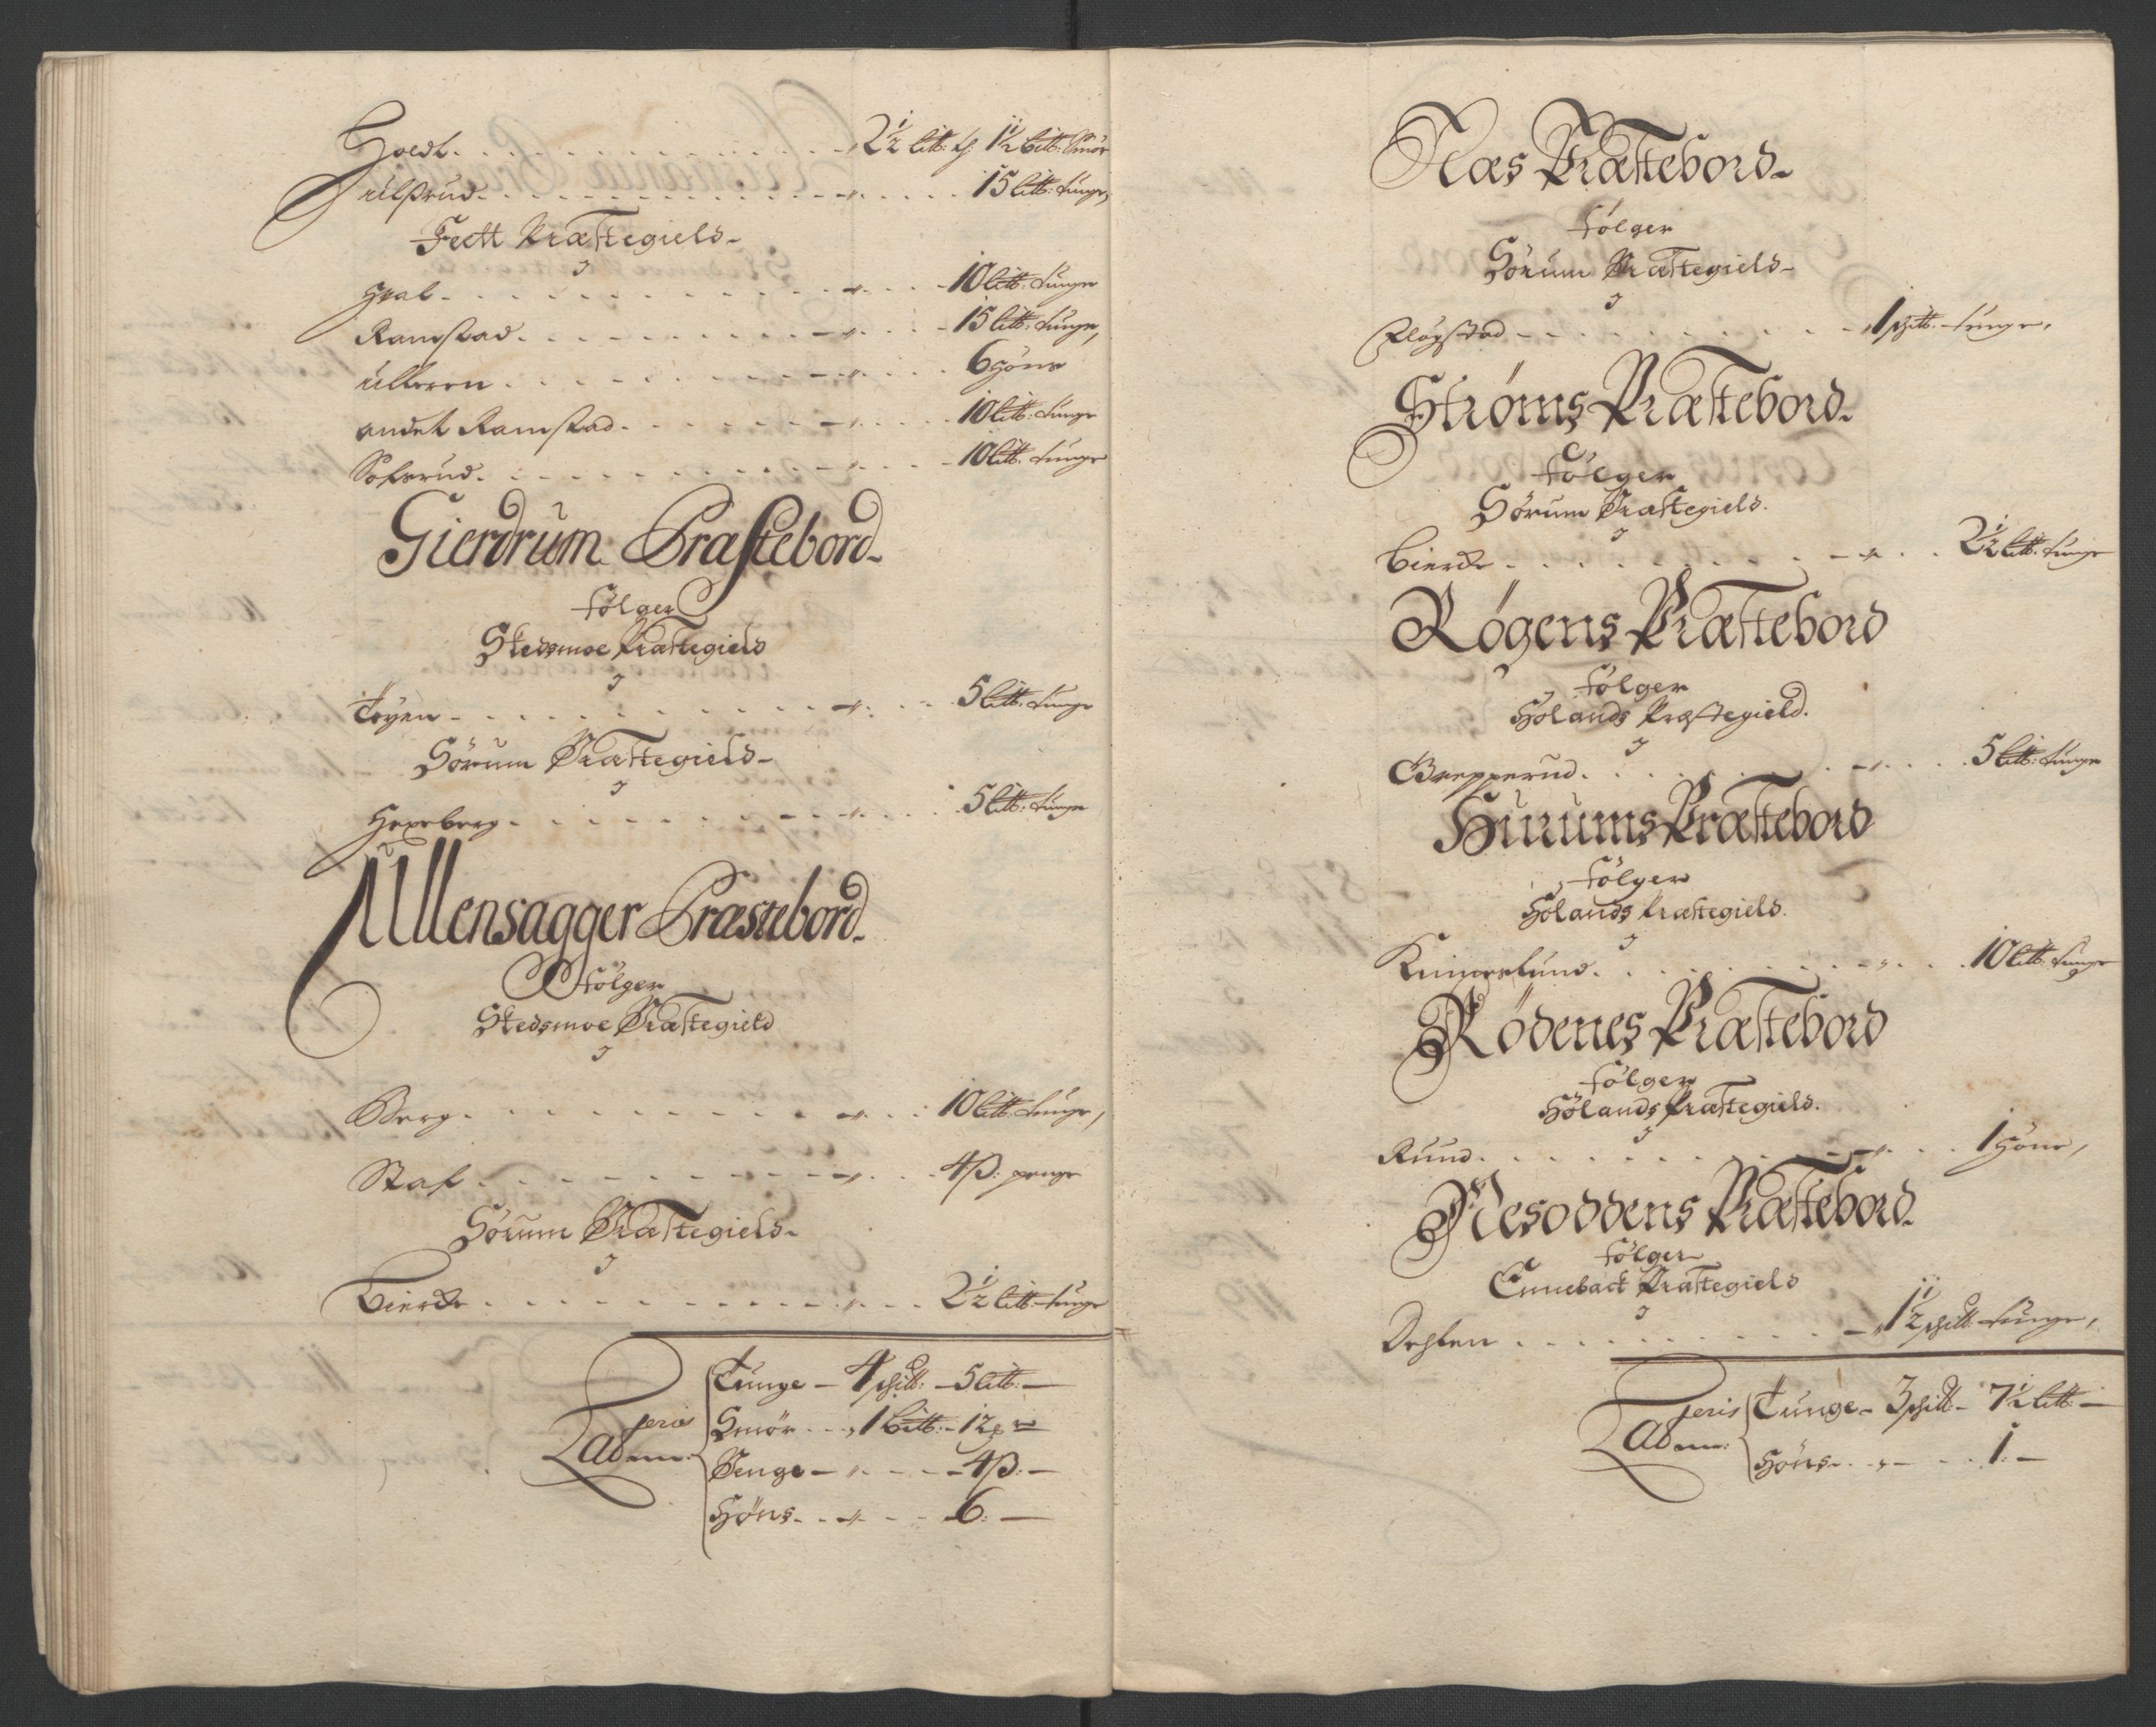 Holdt. . . . 2½ litt: & 1½ bitt: Smör
Julsrud. . . . 15 litt: tunge,
Fett Præstegield
J
Hval. . . . 10 litt: tunge
Ramstad. . . . 15 litt: tunge,
Ulleren. . . . 6 höns
andet Ramstad. . . . 10 litt: tunge
Toherud. . . . 10 litt: tunge
Gierdrum Præstebord
følger
Skedsmoe Præstegield
J
Töyen. . . . 5 litt: tunge
Sørum Præstegield
J
Hexeberg. . . . 5 litt: tunge
Ullensagger Præstebord
følger
Skedsmoe Præstegield
J
Berg. . . . 10 litt: tunge,
Staf. . . . 4 ß: penge
Sørum Præstegield
J
Bierche. . . . 2½ litt: tunge
Lateris
Tunge - 4 schitt: - 5 litt: -
Smör - 1 bitt: - 12
Penge - 4 ß: -
Höns - 6: -
Næs Præstebord
følger
Sørum Præstegield
J
Fløgstad . . . 1 schitt: tunge,
Strøms Præstebord
følger
Sørum Præstegield.
J
Bierche . . . 2½ litt: tunge
Røgens Præstebord
følger
Hølands Præstegield.
J
Brepperud. . . . 5 litt: tunge
Hurums Præstebord
følger
Hølands Præstegield.
J
Kinnestund. . . . 10 litt: tunge
Rødenes Præstebord
følger
Hølands Præstegield.
J
Ruud. . . . 1 höne,
Nesoddens Præstebord
følger
Enneback Præstegield
J
Dehlen . . . 1½ schitt: tunge,
Lateris
Tunge - 3 schitt - 7½ litt: -
Höns - 1: -